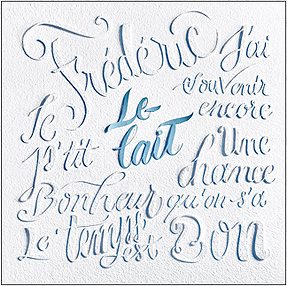 Frédéric J'ai
Souvenir
encore
Je Le-
p'tit lait Une
chance
Bonheur qu'on-s'a
Le temps est Bon